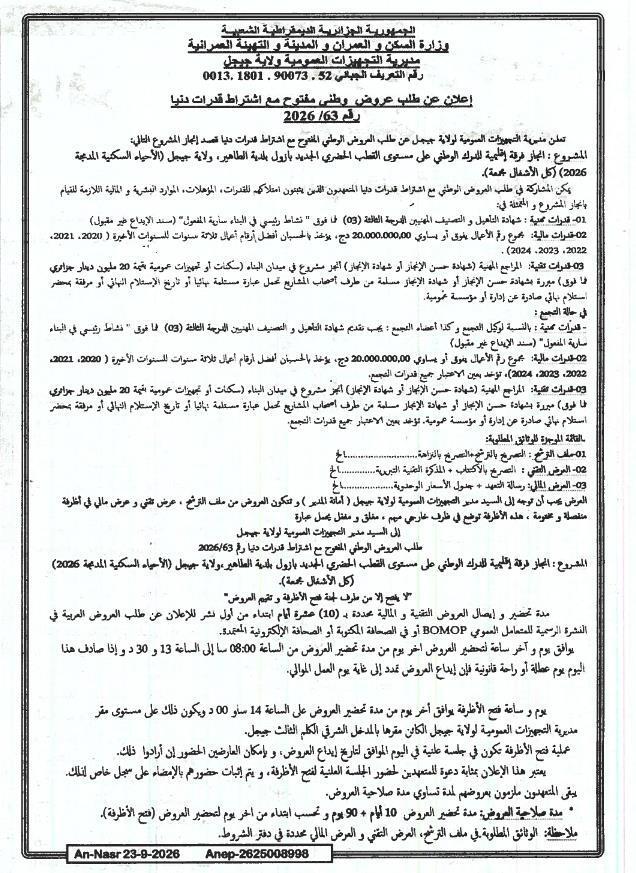 الجمهورية الجزائرية الديمقراطية الشعبية
وزارة السكن و العمران و المدينة و التهيئة العمرانية
مديرية التجهيزات العمومية ولاية جيجل
رقم التعريف الجبائي 52 .90073 .1801 .0013
إعلان عن طلب عروض وطني مفتوح مع اشتراط قدرات دنيا
رقم 63/ 2026
تعلن مديرية التجهيزات العمومية لولاية جيجل عن طلب العروض الوطني المفتوح مع اشتراط قدرات دنيا قصد إنجاز المشروع التالي:
المشروع : انجاز فرقة إقليمية للدرك الوطني على مستوى القطب الحضري الجديد بازول بلدية الطاهير، ولاية جيجل (الأحياء السكنية المدمجة
2026) (كل الأشغال مجمعة).
يمكن المشاركة في طلب العروض الوطني مع اشتراط قدرات دنيا المتعهدون الذين يثبتون امتلاكهم للقدرات، المؤهلات، الموارد البشرية و المالية اللازمة للقيام
بانجاز المشروع و المتمثلة في:
01-قدرات مهنية : شهادة التأهيل و التصنيف المهنيين الدرجة الثالثة (03) فما فوق " نشاط رئيسي في البناء سارية المفعول" (سند الإيداع غير مقبول)
02-قدرات مالية: مجموع رقم الأعمال يفوق أو يساوي 20.000.000,00 دج، يؤخذ بالحسبان أفضل أرقام أعمال ثلاثة سنوات للسنوات الأخيرة ( 2020، 2021،
2022، 2023، 2024) .
03-قدرات تقنية: المراجع المهنية (شهادة حسن الإنجاز أو شهادة الإنجاز) أنجز مشروع في ميدان البناء (سكنات أو تجهيزات عمومية بقيمة 20 مليون دينار جزائري
فما فوق) مبررة بشهادة حسن الإنجاز أو شهادة الإنجاز مسلمة من طرف أصحاب المشاريع تحمل عبارة مستلمة نهائيا أو تاريخ الإستلام النهائي أو مرفقة بمحضر
استلام نهائي صادرة عن إدارة أو مؤسسة عمومية.
في حالة التجمع :
- قدرات مهنية : بالنسبة لوكيل التجمع و كذا أعضاء التجمع : يجب تقديم شهادة التأهيل و التصنيف المهنيين الدرجة الثالثة (03) فما فوق "نشاط رئيسي في البناء
سارية المفعول" (سند الإيداع غير مقبول)
02-قدرات مالية: مجموع رقم الأعمال يفوق أو يساوي 20.000.000,00 دج، يؤخذ بالحسبان أفضل أرقام أعمال ثلاثة سنوات للسنوات الأخيرة ( 2020، 2021،
2022، 2023، 2024)، تؤخذ بعين الاعتبار جميع قدرات التجمع.
03-قدرات تقنية: المراجع المهنية (شهادة حسن الإنجاز أو شهادة الإنجاز) أنجز مشروع في ميدان البناء (سكنات أو تجهيزات عمومية بقيمة 20 مليون دينار جزائري
فما فوق) مبررة بشهادة حسن الإنجاز أو شهادة الإنجاز مسلمة من طرف أصحاب المشاريع تحمل عبارة مستلمة نهائيا أو تاريخ الإستلام النهائي أو مرفقة بمحضر
استلام نهائي صادرة عن إدارة أو مؤسسة عمومية. تؤخذ بعين الاعتبار جميع قدرات التجمع.
القائمة الموجزة للوثائق المطلوبة:
01-ملف الترشح : التصريح بالترشح+التصريح بالنزاهة..........................الخ
02- العرض التقني : التصريح بالاكتتاب + المذكرة التقنية التبريرية..............الخ
03- العرض المالي: رسالة التعهد + جدول الأسعار الوحدوية....................الخ
العرض يجب أن توجه إلى السيد مدير التجهيزات العمومية لولاية جيجل ( أمانة المدير ) و تتكون العروض من ملف الترشح ، عرض تقني و عرض مالي في أظرفة
منفصلة و مختومة ، هذه الأظرفة توضع في ظرف خارجي مبهم ، مغلق و مقفل يحمل عبارة
إلى السيد مدير التجهيزات العمومية لولاية جيجل
طلب العروض الوطني المفتوح مع اشتراط قدرات دنيا رقم 2026/63
المشروع : انجاز فرقة إقليمية للدرك الوطني على مستوى القطب الحضري الجديد بازول بلدية الطاهير،ولاية جيجل (الأحياء السكنية المدمجة 2026)
(كل الأشغال مجمعة).
"لا يفتح إلا من طرف لجنة فتح الأظرفة و تقييم العروض"
مدة تحضير و إيصال العروض التقنية و المالية محددة بـ (10) عشرة أيام ابتداء من أول نشر للإعلان عن طلب العروض العربية في
النشرة الرسمية للمتعامل العمومي BOMOP أو في الصحافة المكتوبة أو الصحافة الإلكترونية المعتمدة.
يوافق يوم و آخر ساعة لتحضير العروض اخر يوم من مدة تحضير العروض من الساعة 08:00 سا إلى الساعة 13 و 30 د و إذا صادف هذا
اليوم يوم عطلة أو راحة قانونية فإن إيداع العروض تمدد إلى غاية يوم العمل الموالي.
يوم و ساعة فتح الأظرفة يوافق أخر يوم من مدة تحضير العروض على الساعة 14 ساو 00 د ويكون ذلك على مستوى مقر
مديرية التجهيزات العمومية لولاية جيجل الكائن مقرها بالمدخل الشرقي الكلم الثالث جيجل.
عملية فتح الأظرفة تكون في جلسة علنية في اليوم الموافق لتاريخ إيداع العروض، و بإمكان العارضين الحضور إن أرادوا ذلك.
يعتبر هذا الإعلان بمثابة دعوة للمتعهدين لحضور الجلسة العلنية لفتح الأظرفة، و يتم إثبات حضورهم بالإمضاء على سجل خاص لذلك.
يبقى المتعهدون ملزمون بعروضهم لمدة تساوي مدة صلاحية العروض.
* مدة صلاحية العروض: مدة تحضير العروض 10 أيام + 90 يوم و تحسب ابتداء من اخر يوم لتحضير العروض (فتح الأظرفة).
ملاحظة: الوثائق المطلوبة في ملف الترشح، العرض التقني و العرض المالي محددة في دفتر الشروط.
An-Nasr 23-9-2026 Anep-2625008998